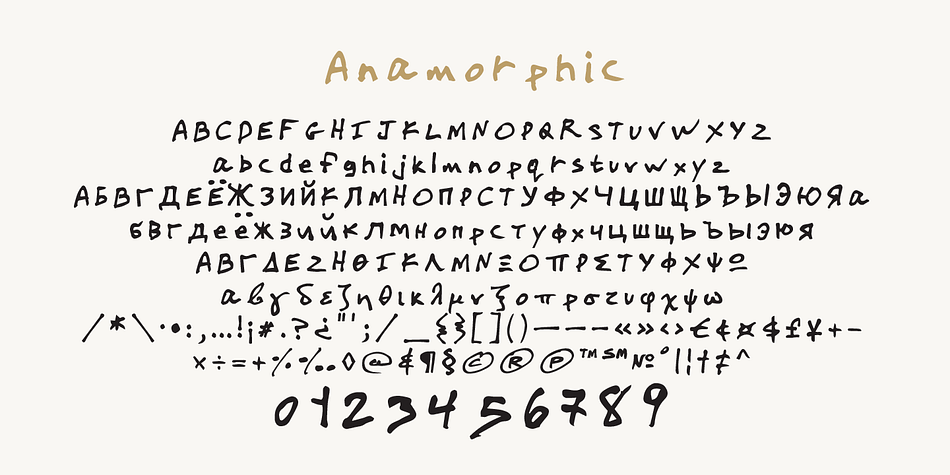 Anamorphic
ABCDEFGHIJKLMNOPQRSTUVWXYZ
abcdefghijklmnopqrstuvwxyz
АБВГДЕЁЖЗИЙКЛМНОПРСТУФХЧЦШЩЬЪЫЭЮЯа
бвгдеёжзийклмнопрстуфхчцшщьъыэюя
ΑΒΓΔΕΖΗΘΙΚΛΜΝΞΟΠΡΣΤΥΦΧΨΩ
αβγδεζηθικλμνξοπρσςτυφχψω
/*\·•:,…!¡#.?¿"';/_{}[]()—–-«»‹›€¢¤$£¥+−
×÷=+%‰◊@&¶§©®℗™℠№°|¦†‡^
0123456789